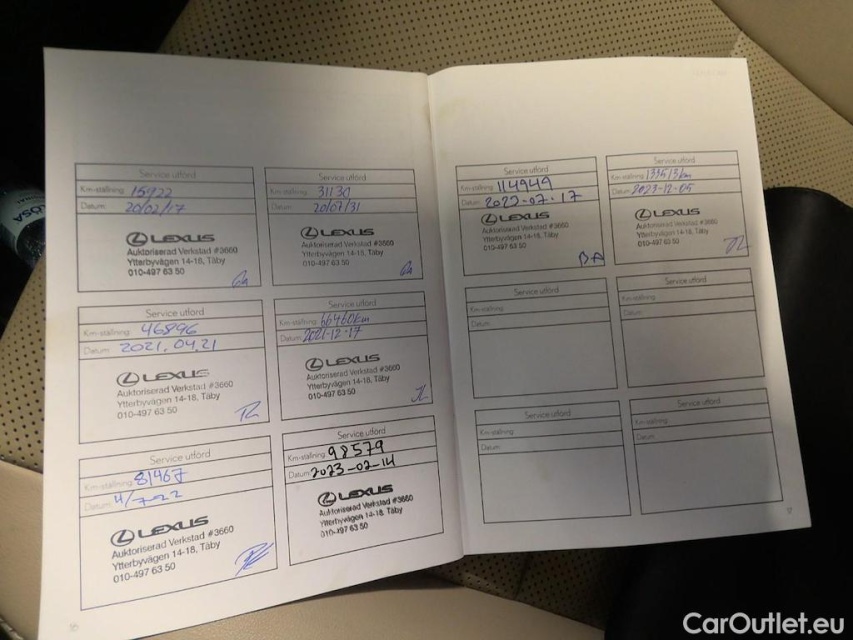 Service utförd
Km-ställning 15922
Datum 20/02/17
LEXUS
Auktoriserad Verkstad #3660
Ytterbyvägen 14-18, Täby
010-497 63 50
Service utförd
Km-ställning 31130
Datum 20/07/31
LEXUS
Auktoriserad Verkstad #3660
Ytterbyvägen 14-18, Täby
010-497 63 50
Service utförd
Km-ställning 46896
Datum 2021.04.21
LEXUS
Auktoriserad Verkstad #3660
Ytterbyvägen 14-18, Täby
010-497 63 50
Service utförd
Km-ställning 66460km
Datum 2021-12-17
LEXUS
Auktoriserad Verkstad #3660
Ytterbyvägen 14-18, Täby
010-497 63 50
Service utförd
Km-ställning 81467
Datum 4/7-22
LEXUS
Auktoriserad Verkstad #3660
Ytterbyvägen 14-18, Täby
010-497 63 50
Service utförd
Km-ställning 98579
Datum 2023-02-14
LEXUS
Auktoriserad Verkstad #3660
Ytterbyvägen 14-18, Täby
010-497 63 50
Service utförd
Km-ställning 114949
Datum 2022-07-17
LEXUS
Auktoriserad Verkstad #3660
Ytterbyvägen 14-18, Täby
010-497 63 50
BA
Service utförd
Km-ställning
Datum 2023-12-05
LEXUS
Auktoriserad Verkstad #3660
Ytterbyvägen 14-18, Täby
010-497 63 50
Service utförd
Km-ställning
Datum
Service utförd
Km-ställning
Datum
Service utförd
Km-ställning
Datum
Service utförd
Km-ställning
Datum
CarOutlet.eu